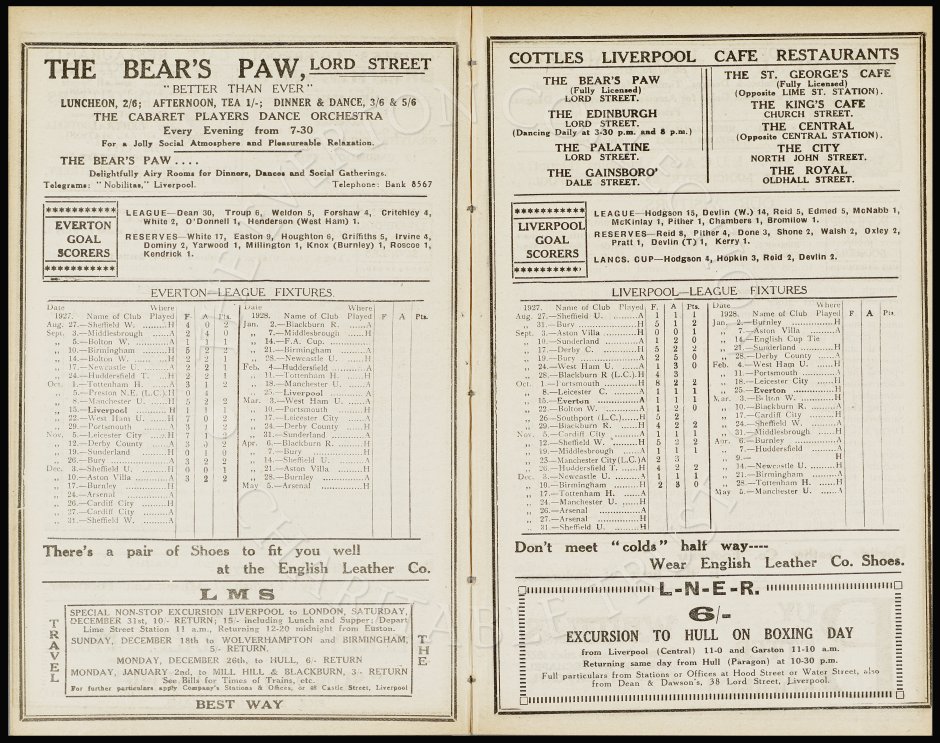 THE BEAR'S PAW, LORD STREET
"BETTER THAN EVER"
LUNCHEON, 2/6; AFTERNOON, TEA 1/-; DINNER & DANCE, 3/6 & 5/6
THE CABARET PLAYERS DANCE ORCHESTRA
Every Evening from 7-30
For a Jolly Social Atmosphere and Pleasureable Relaxation.
THE BEAR'S PAW . . . .
Delightfully Airy Rooms for Dinners, Dances and Social Gatherings.
Telegrams: "Nobilitas," Liverpool. Telephone: Bank 8567
EVERTON
GOAL
SCORERS
LEAGUE—Dean 30, Troup 6, Weldon 5, Forshaw 4, Critchley 4,
White 2, O'Donnell 1, Henderson (West Ham) 1.
RESERVES—White 17, Easton 9, Houghton 6, Griffiths 5, Irvine 4,
Dominy 2, Yarwood 1, Millington 1, Knox (Burnley) 1, Roscoe 1,
Kendrick 1.
EVERTON—LEAGUE FIXTURES.
Date Where
1927. Name of Club Played F A Pts.
Aug. 27.—Sheffield W. ........H 4 0 2
Sept. 3.—Middlesbrough ......A 2 4 0
„ 5.—Bolton W. ............A 1 1 1
„ 10.—Birmingham .........H 5 2 2
„ 14.—Bolton W. ...........H 2 2 1
„ 17.—Newcastle U. ........A 2 2 1
„ 24.—Huddersfield T. .....H 2 2 1
Oct. 1.—Tottenham H. ........A 3 1 2
„ 5.—Preston N.E. (L.C.).H 0 4
„ 8.—Manchester U. .......H 5 2 2
„ 15.—Liverpool ............H 1 1 1
„ 22.—West Ham U. ........H 7 0 2
„ 29.—Portsmouth ..........A 3 1 2
Nov. 5.—Leicester City .......H 7 1 2
„ 12.—Derby County .......A 3 0 2
„ 19.—Sunderland ..........H 0 1 0
„ 26.—Bury .................A 3 2 2
Dec. 3.—Sheffield U. ..........H 0 0 1
„ 10.—Aston Villa ...........A 3 2 2
„ 17.—Burnley ..............H
„ 24.—Arsenal ..............A
„ 26.—Cardiff City ..........H
„ 27.—Cardiff City ..........A
„ 31.—Sheffield W. .........A
Date Where
1928. Name of Club Played F A Pts.
Jan. 2.—Blackburn R. ..........A
„ 7.—Middlesbrough ........H
„ 14.—F.A. Cup.
„ 21.—Birmingham ...........A
„ 28.—Newcastle U. .........H
Feb. 4.—Huddersfield ..........A
„ 11.—Tottenham H. .........H
„ 18.—Manchester U. .........A
„ 25.—Liverpool ..............A
Mar. 3.—West Ham U. ..........A
„ 10.—Portsmouth ............H
„ 17.—Leicester City .........A
„ 24.—Derby County .........H
„ 31.—Sunderland ............A
Apr. 6.—Blackburn R. ..........H
„ 7.—Bury ...................H
„ 14.—Sheffield U. ...........A
„ 21.—Aston Villa ............H
„ 28.—Burnley ................A
May 5.—Arsenal ................H
There's a pair of Shoes to fit you well
at the English Leather Co.
LMS
TRAVEL
SPECIAL NON-STOP EXCURSION LIVERPOOL to LONDON, SATURDAY,
DECEMBER 31st, 10/- RETURN; 15/- including Lunch and Supper; Depart
Lime Street Station 11 a.m., Returning 12-20 midnight from Euston.
SUNDAY, DECEMBER 18th to WOLVERHAMPTON and BIRMINGHAM,
5/- RETURN.
MONDAY, DECEMBER 26th, to HULL, 6/- RETURN
MONDAY, JANUARY 2nd, to MILL HILL & BLACKBURN, 3/- RETURN
See Bills for Times of Trains, etc.
For further particulars apply Company's Stations & Offices, or at Castle Street, Liverpool
THE
BEST WAY
COTTLES LIVERPOOL CAFE RESTAURANTS
THE BEAR'S PAW
(Fully Licensed)
LORD STREET.
THE EDINBURGH
LORD STREET.
(Dancing Daily at 3-30 p.m. and 8 p.m.)
THE PALATINE
LORD STREET.
THE GAINSBORO'
DALE STREET.
THE ST. GEORGE'S CAFE
(Fully Licensed)
(Opposite LIME ST. STATION).
THE KING'S CAFE
CHURCH STREET.
THE CENTRAL
(Opposite CENTRAL STATION).
THE CITY
NORTH JOHN STREET.
THE ROYAL
OLDHALL STREET.
LIVERPOOL
GOAL
SCORERS
LEAGUE—Hodgson 15, Devlin (W.) 14, Reid 5, Edmed 5, McNabb 1,
McKinlay 1, Pither 1, Chambers 1, Bromilow 1.
RESERVES—Reid 8, Pither 4, Done 3, Shone 2, Walsh 2, Oxley 2,
Pratt 1, Devlin (T) 1, Kerry 1.
LANCS. CUP—Hodgson 4, Hopkin 3, Reid 2, Devlin 2.
LIVERPOOL—LEAGUE FIXTURES
1927. Name of Club Played F. A Pts.
Aug. 27.—Sheffield U. ..........A 1 1 1
„ 31.—Bury ..................H 5 1 2
Sept. 3.—Aston Villa ...........H 0 0 1
„ 10.—Sunderland ..........A 1 2 0
„ 17.—Derby C. .............H 5 2 2
„ 19.—Bury ..................A 2 5 0
„ 24.—West Ham U. ........A 1 3 0
„ 28.—Blackburn R (L.C.).H 4 3
Oct. 1.—Portsmouth ..........H 8 2 2
„ 8.—Leicester C. ..........A 1 1 1
„ 15.—Everton ...............A 1 1 1
„ 22.—Bolton W. ............A 1 2 0
„ 26.—Southport (L.C.) ....H 5 2
„ 29.—Blackburn R. ........H 4 2 2
Nov. 5.—Cardiff City ..........A 1 1 1
„ 12.—Sheffield W. ..........H 5 2 2
„ 19.—Middlesbrough ......A 1 1 1
„ 23.—Manchester City(L.C.)A 2 3
„ 26.—Huddersfield T. .....H 4 2 2
Dec. 3.—Newcastle U. .........A 1 1 1
„ 10.—Birmingham .........H 2 3 0
„ 17.—Tottenham H. .......A
„ 24.—Manchester U. .......H
„ 26.—Arsenal ...............A
„ 27.—Arsenal ...............H
„ 31.—Sheffield U. ..........H
Date Where
1928. Name of Club Played F A Pts
Jan. 2.—Burnley ...............H
„ 7.—Aston Villa ...........A
„ 14.—English Cup Tie
„ 21.—Sunderland ..........H
„ 28.—Derby County .......A
Feb. 4.—West Ham U. ........H
„ 11.—Portsmouth ..........A
„ 18.—Leicester City ........H
„ 25.—Everton ...............H
Mar. 3.—Bolton W. ............H
„ 10.—Blackburn R. ........A
„ 17.—Cardiff City ..........H
„ 24.—Sheffield W. ..........A
„ 31.—Middlesbrough ......H
Apr. 6.—Burnley ...............A
„ 7.—Huddersfield .........A
„ 9.— ......................H
„ 14.—Newcastle U. .........H
„ 21.—Birmingham .........A
„ 28.—Tottenham H. .......H
May 5.—Manchester U. .......A
Don't meet "colds" half way----
Wear English Leather Co. Shoes.
L-N-E-R.
6/-
EXCURSION TO HULL ON BOXING DAY
from Liverpool (Central) 11-0 and Garston 11-10 a.m.
Returning same day from Hull (Paragon) at 10-30 p.m.
Full particulars from Stations or Offices at Hood Street or Water Street, also
from Dean & Dawson's, 38 Lord Street, Liverpool.